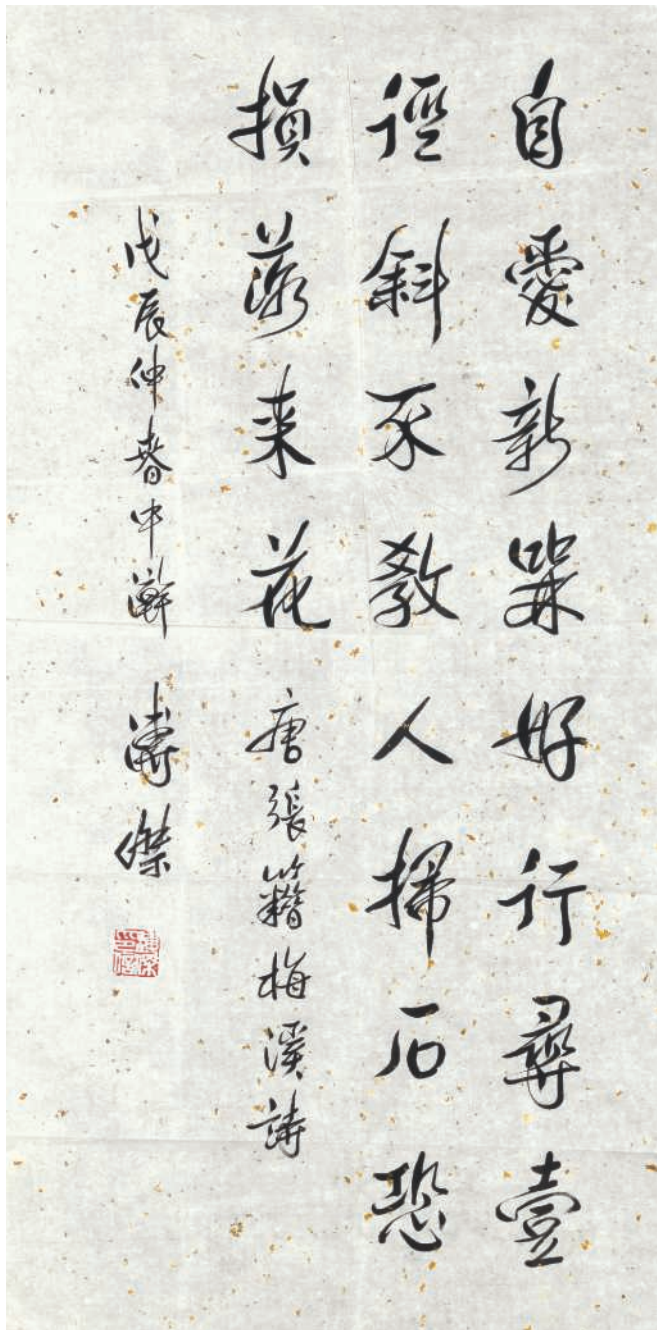 自愛新槑好行尋壹
徑斜不教人掃石恐
損落来花 唐張籍梅溪詩
戊辰仲春中澣 溥傑